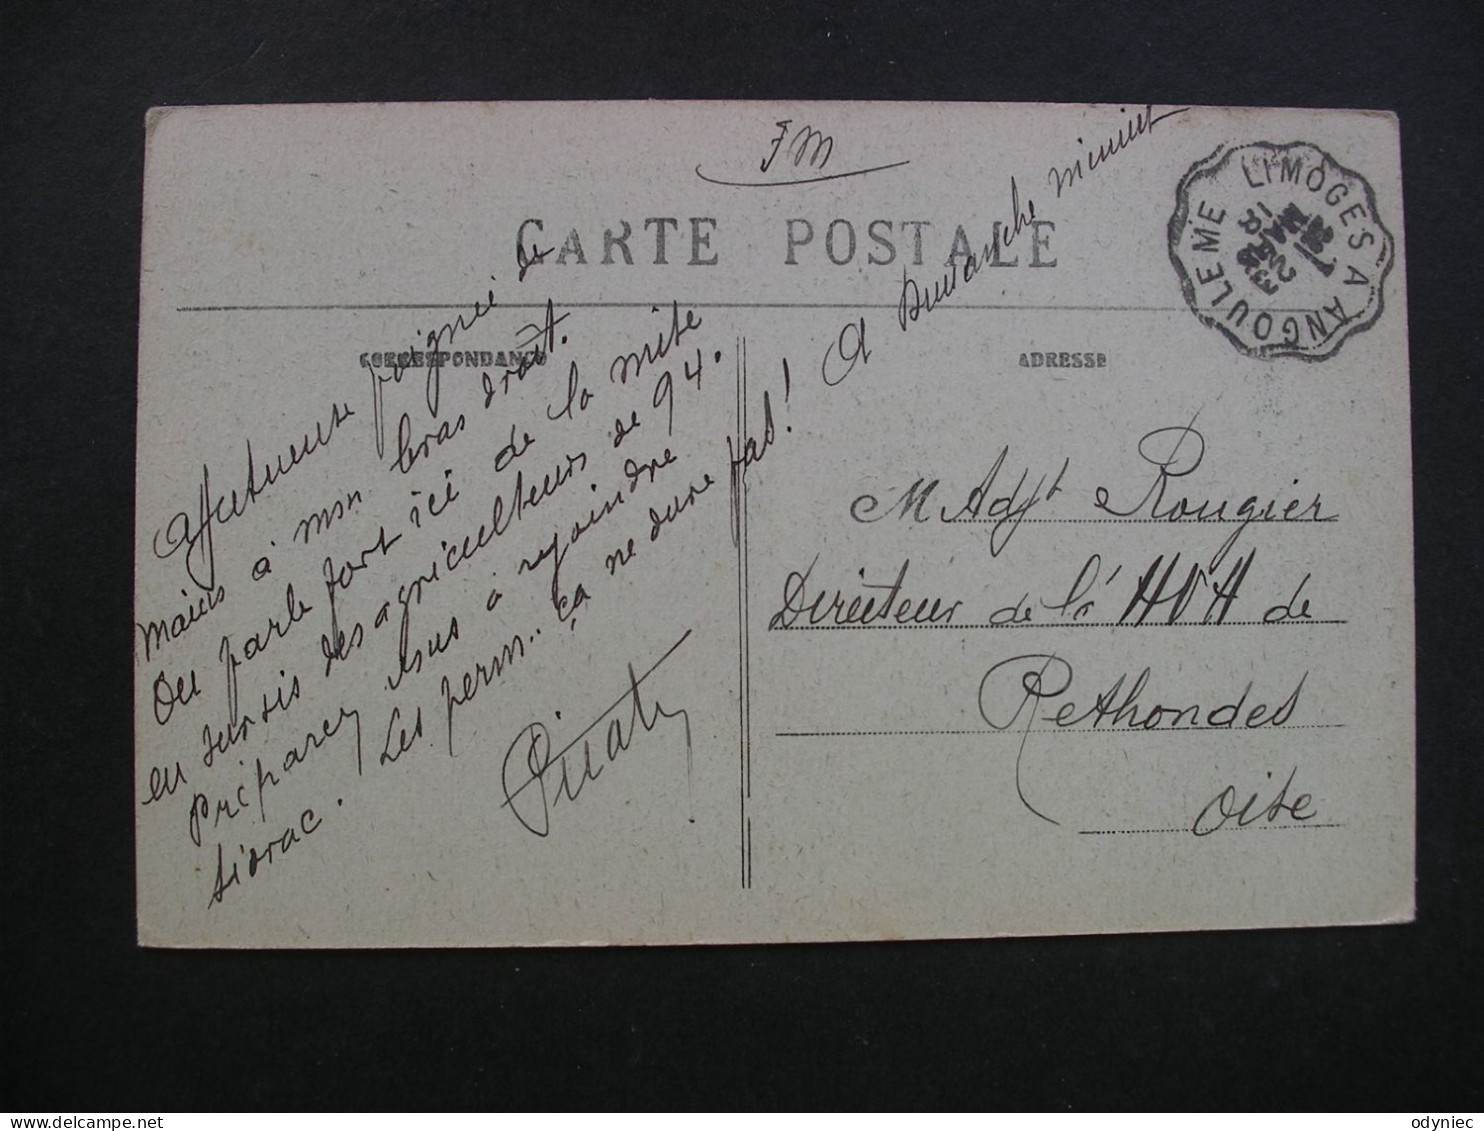 FM
CARTE POSTALE
CORRESPONDANCE
ADRESSE
LIMOGES A ANGOULEME
23
poignée de
mains à mon bras droit.
On parle fort ici de la mise
en sursis des agriculteurs de 94.
Préparez vous à rejoindre
Siorac. Les perm.. ça ne dure pas! A Dimanche minuit
M Adjt Rougier
Directeur de la HVA de
Rethondes
Oise
odyniec